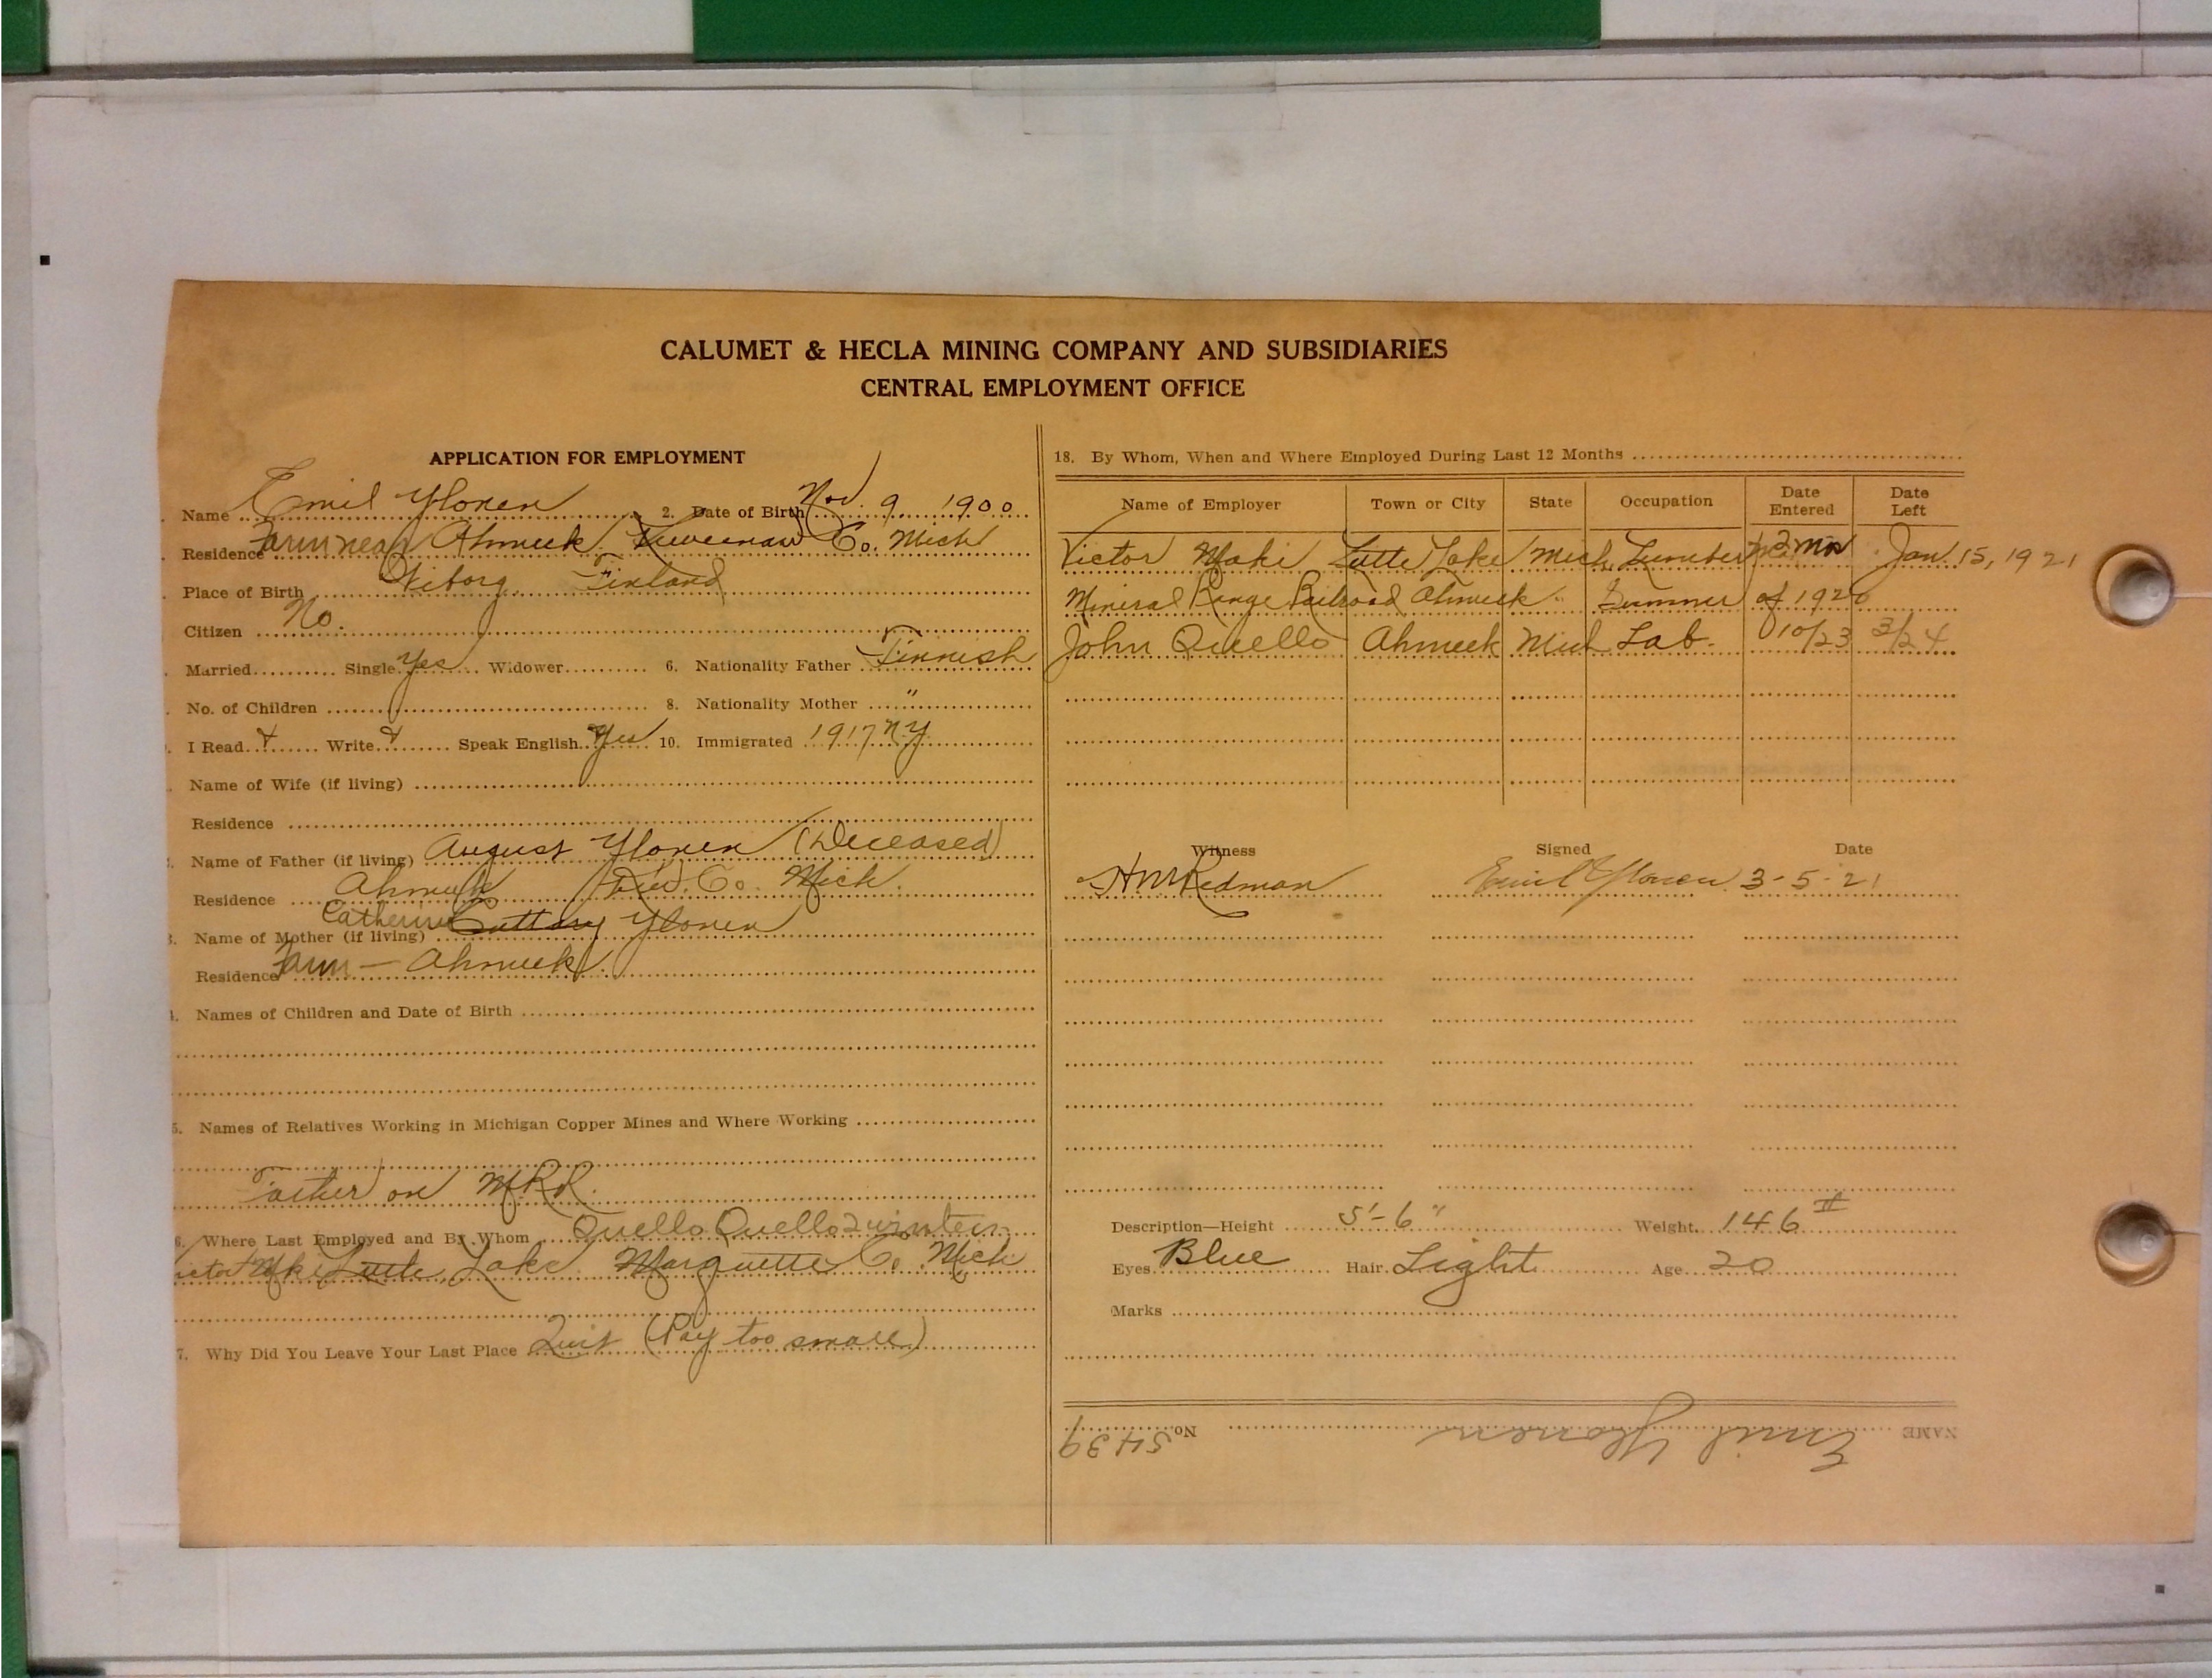 CALUMET & HECLA MINING COMPANY AND SUBSIDIARIES
CENTRAL EMPLOYMENT OFFICE
APPLICATION FOR EMPLOYMENT
Name Emil Ylonen 2. Date of Birth Nov. 9 1900
Residence Farm near Ahmeek Keweenaw Co. Mich
Place of Birth Wiborg, Finland
Citizen No.
Married Single Yes Widower 6. Nationality Father Finnish
No. of Children 8. Nationality Mother "
I Read Write Speak English Yes 10. Immigrated 1917 N.Y.
Name of Wife (if living)
Residence
Name of Father (if living) August Ylonen (Deceased)
Residence Ahmeek Kew. Co. Mich.
Catherine
3. Name of Mother (if living) Ylonen
Residence Farm — Ahmeek
4. Names of Children and Date of Birth
5. Names of Relatives Working in Michigan Copper Mines and Where Working
Father on M.R.R.
6. Where Last Employed and By Whom Quello Quello 2 winters
Little Lake Marquette Co. Mich
7. Why Did You Leave Your Last Place Quit (Pay too small)
18. By Whom, When and Where Employed During Last 12 Months
Name of Employer Town or City State Occupation Date Entered Date Left
Victor Maki Little Lake Mich Lumber 2 mo Jan. 15, 1921
Mineral Range Railroad Ahmeek " Summer of 1920
John Quello Ahmeek Mich Lab. 10/23 3/24
Witness Signed Date
Redman Emil Ylonen 3-5-21
Description—Height 5'-6" Weight 146 #
Eyes Blue Hair Light Age 20
Marks
NAME Emil Ylonen No. 5439